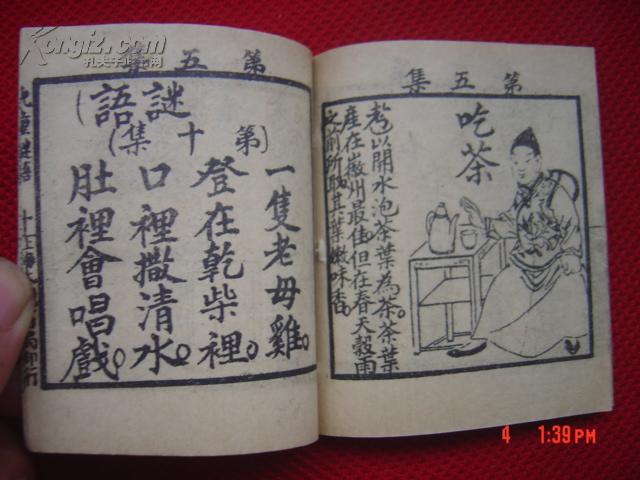 第五集
吃茶
以開水泡茶葉為茶茶葉
產在徽州最佳但在春天穀雨
之前所取其葉嫩味香。
第五集
謎語
(第十集)
一隻老母雞。
登在乾柴裡。
口裡撒清水。
肚裡會唱戲。
兒童謎語 十
局印行
Kongfz.com
4 1:39PM